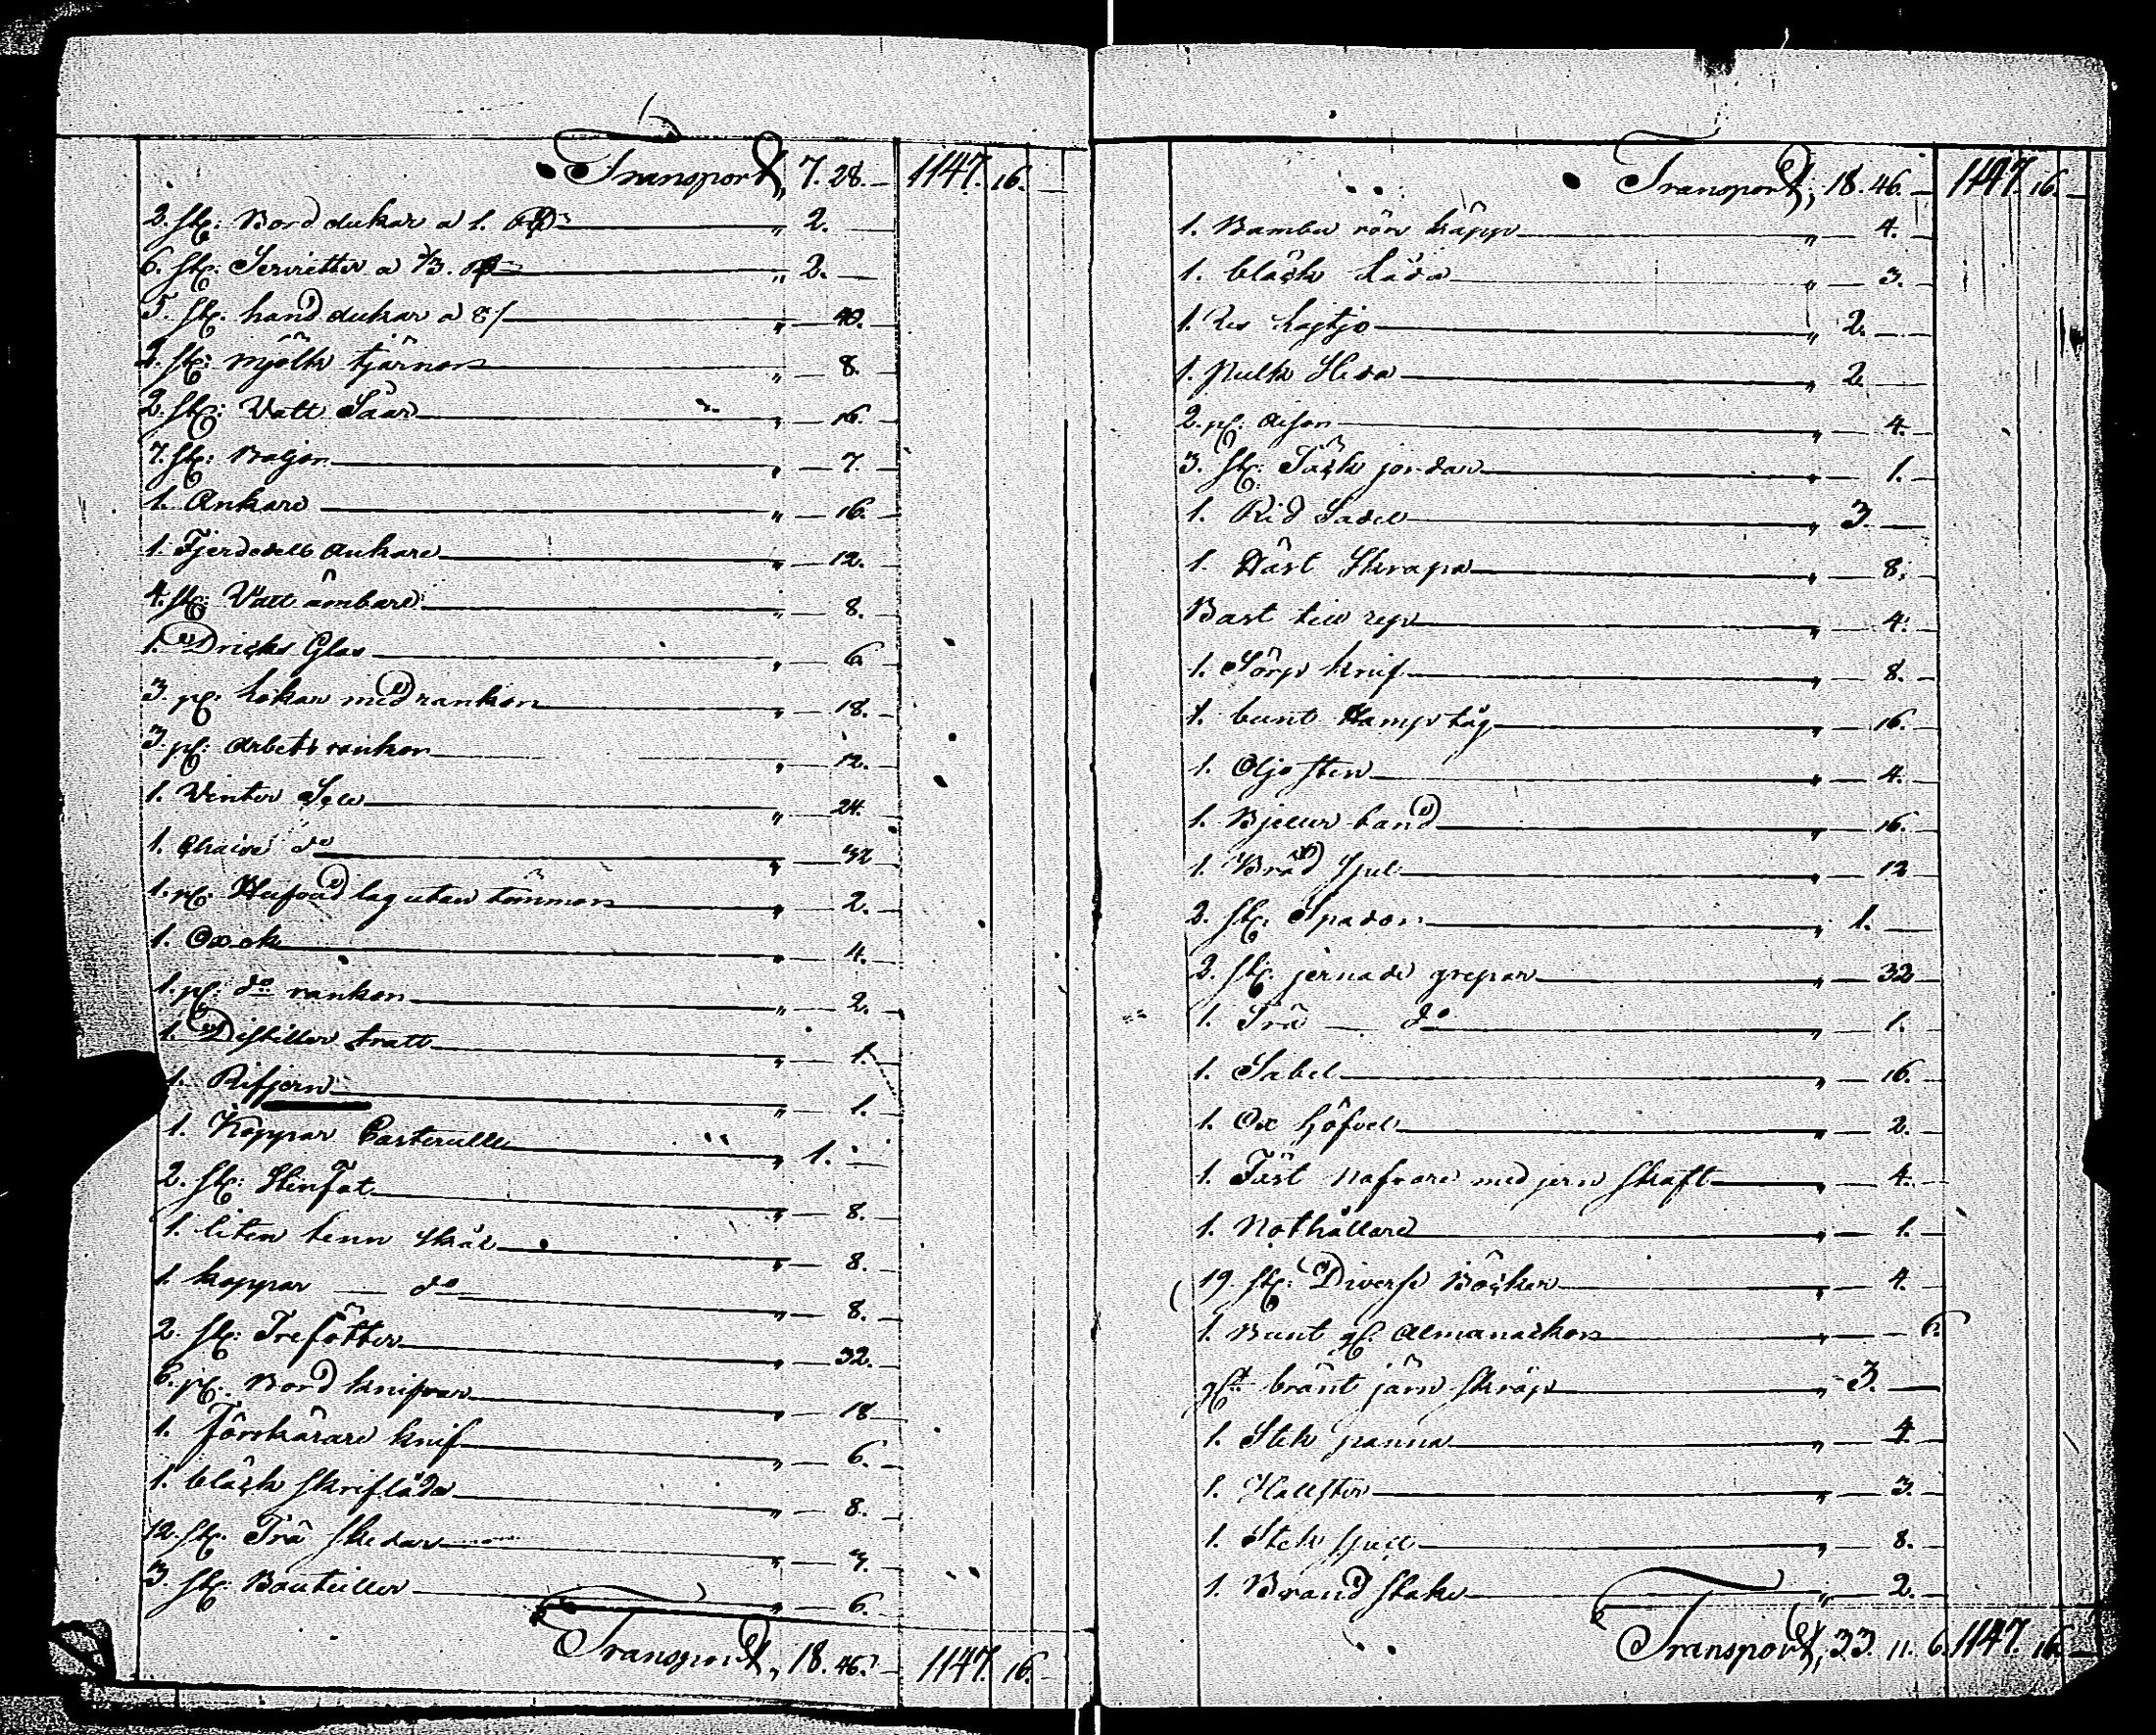 Transport, 7. 28. — 1147. 16. —
2. st: Bord dukar a 1. — " 2. —
6. st: Servietter a 1/3. — " 2. —
5. st: hand dukar a 8/ — " — 40. —
2. st: mjölk tjärnor — " — 8. —
2. st: Vatt Såar — " — 16. —
7. st: Baljor — " — 7. —
1. Ankare — " — 16. —
1. Fjerdedels Ankare — " — 12. —
4. st: Vatt ämbare — " — 8. —
1. Dricks Glas — " — 6. —
3. p: lokar med rankor — " — 18. —
3. p: arbets rankor — " — 12. —
1. Vinter Sele — " — 24. —
1. Chaise do — " — 32 —
1. p: Hufvud lag utan tömmar — " — 2. —
1. Ox ok — " — 4. —
1. p: do rankor — " — 2. —
1. Distiller tratt — " — 1. —
1. Rifjern — " — 1. —
1. Koppar Casterulle — " 1. —
2. st: Stenfat — " — 8. —
1. liten tenn skål — " — 8. —
1. koppar — do — " — 8. —
2. st: Trefötter — " — 32. —
6. p: Bord knifvar — " — 18 —
1. förskärare knif — " — 6. —
1. bläck skriflåda — " — 8. —
12. st: Trä skedar — " — 3. —
3. st: Bouteiller — " — 6. —
Transport, 18. 46. — 1147. 16. —
Transport, 18. 46. — 1147. 16. —
1. Bambu rör käpp — " — 4. —
1. bläck låda — " — 3. —
1. Res — " 2. —
1. Pulk — " 2 —
2. p: — " — 4. —
3. st: Säck — " — 1. —
1. Rid Sadel — " 3. —
1. Häst Skrapa — " — 8. —
Bast till rep — " — 4. —
1. Sörp knif — " — 8. —
1. bunt Hamp tåg — " — 16. —
1. Oljo sten — " — 4. —
1. Bjeller band — " — 16. —
1. Bröd spel — " — 12
2. st: Spador — " 1. —
2. st: jernade grepar — " — 32
1. Trä — do — " — 1. —
1. Sabel — " — 16. —
1. Ox höfvel — " — 2. —
1. Fäst Nafvare med jern skaft — " — 4. —
1. Nothållare — " — 1. —
19. st: Diverse Böcker — " — 4. —
1. Bunt gl: Almanackor — " — — 6.
glt: bränt järn skråp — " 3. —
1. Stek panna — " — 4 —
1. Halster — " — 3. —
1. Stek spett — " — 8. —
1. Brand stake — " — 2. —
Transport, 33. 11. 6. 1147. 16. —